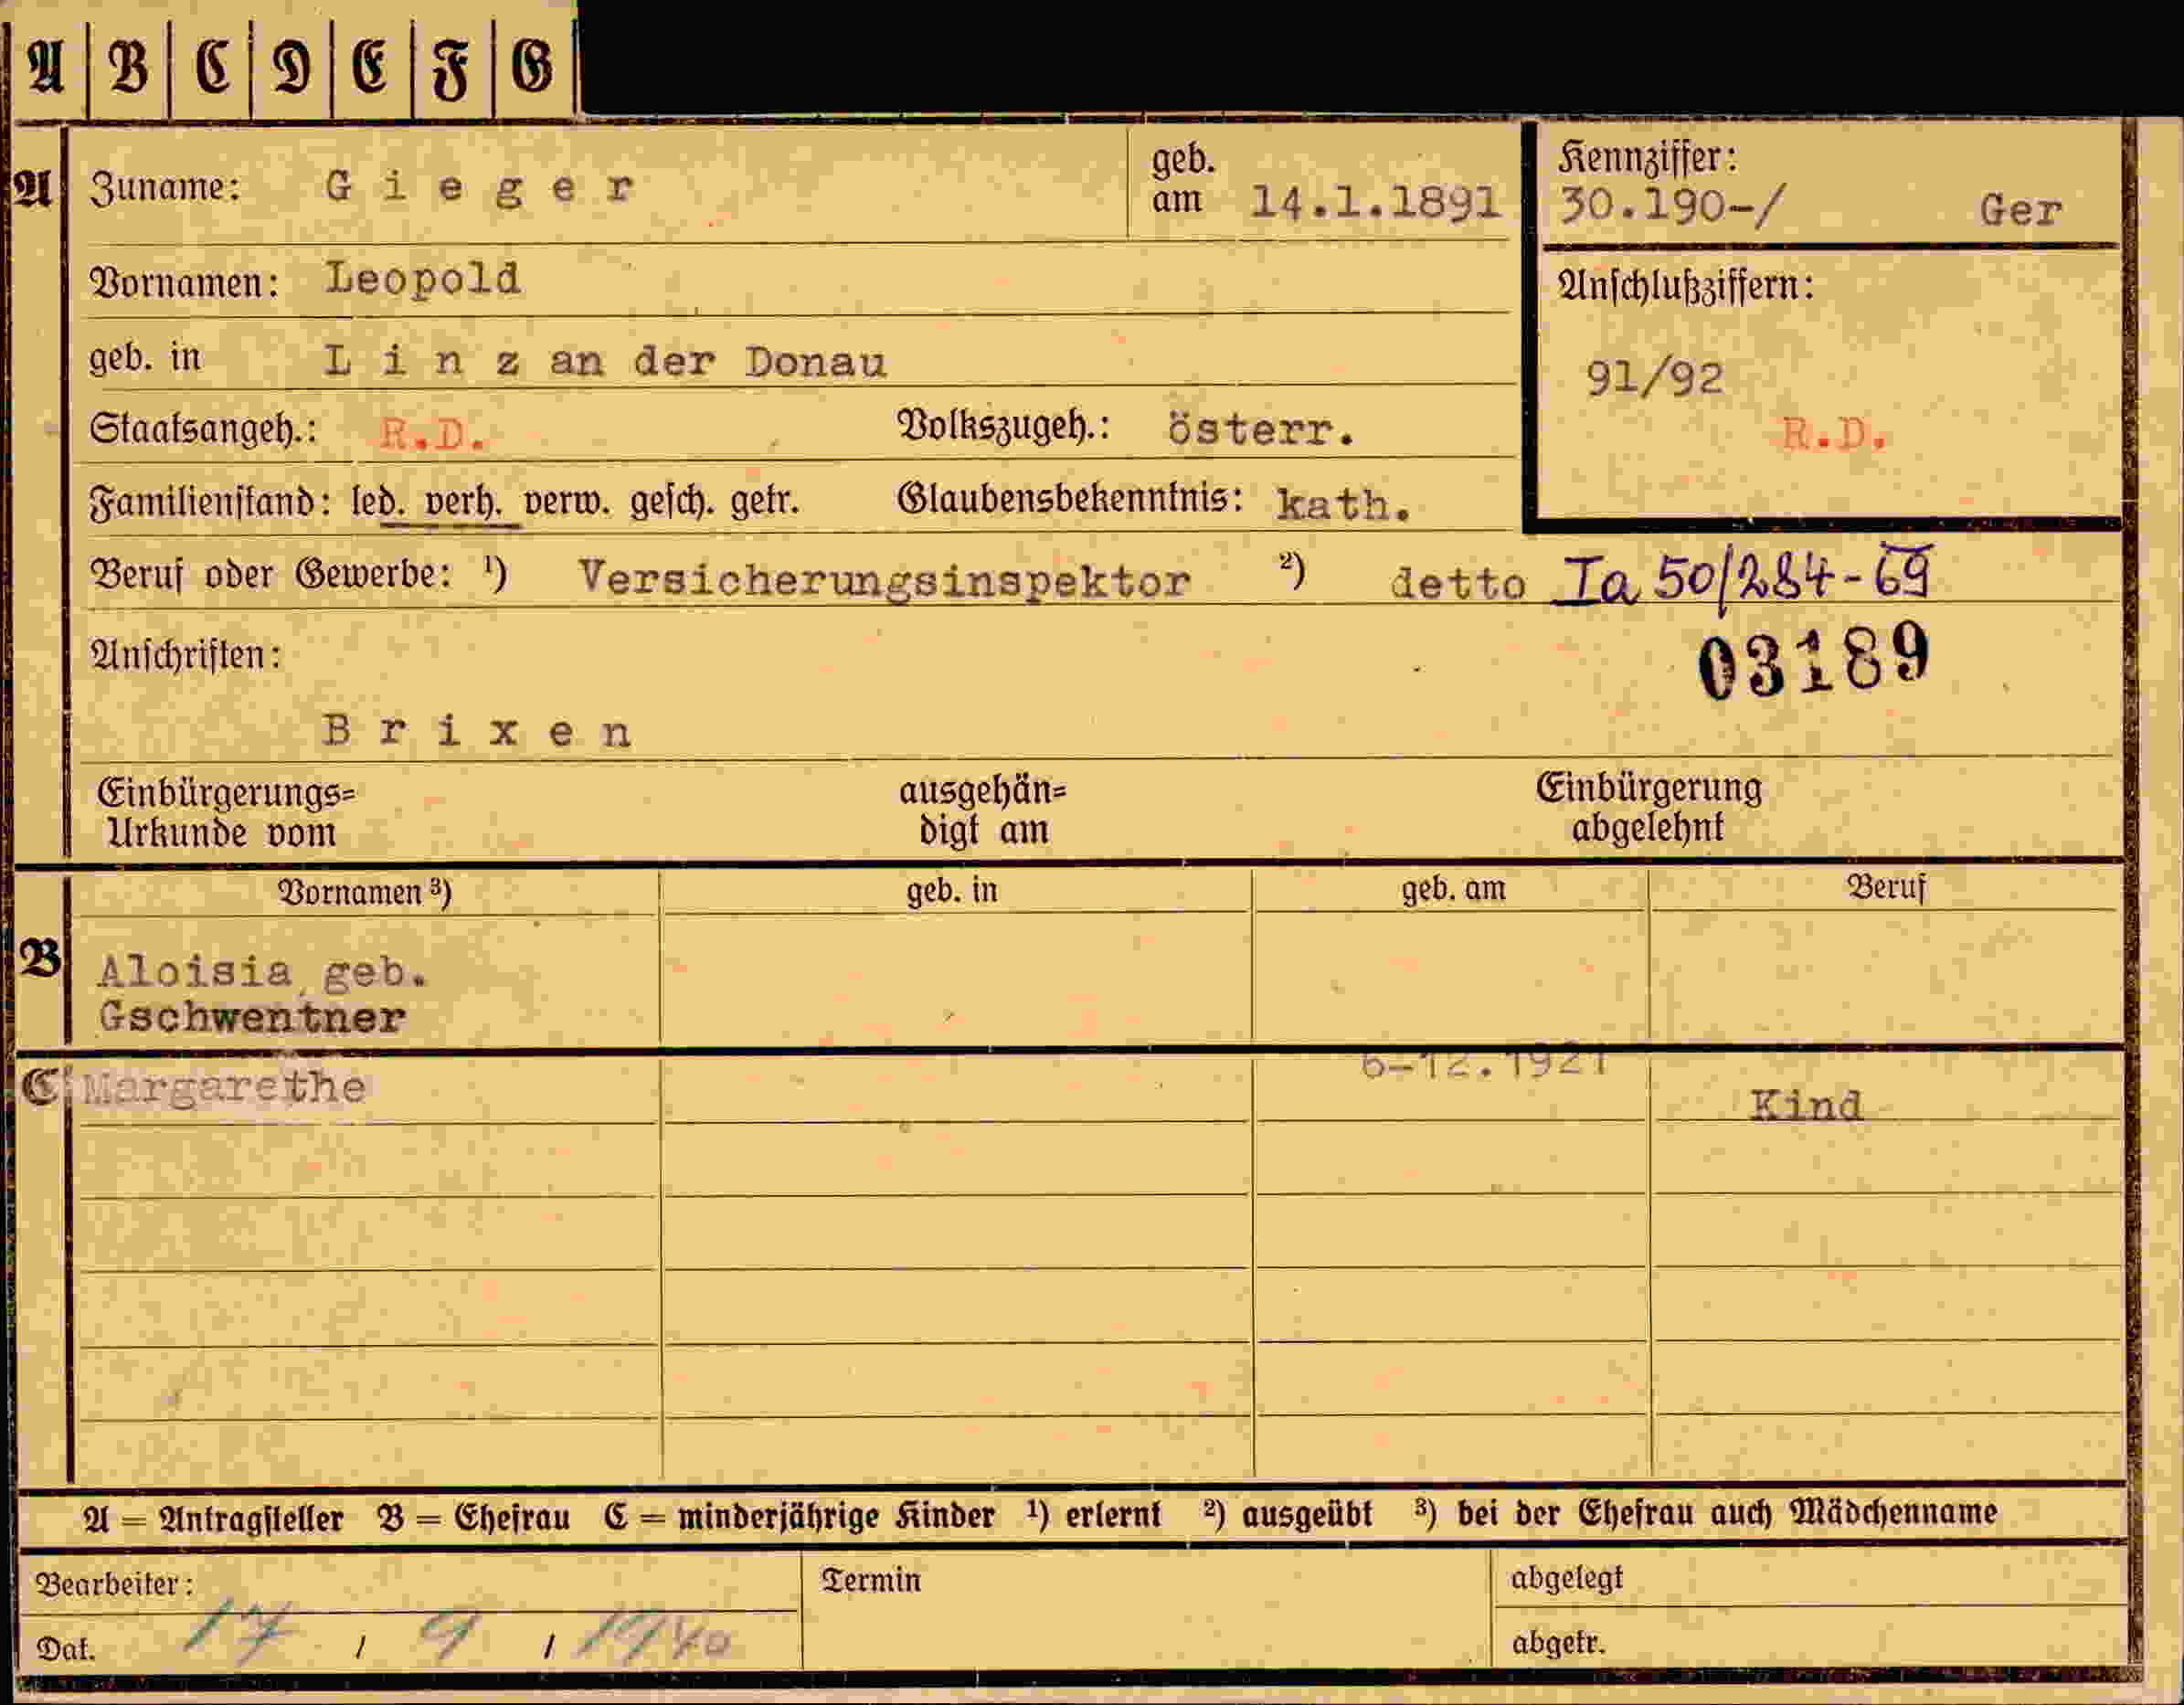 A B C D E F G
A Zuname: Gieger geb. am 14.1.1891 Kennziffer: 30.190-/ Ger
Vornamen: Leopold Anschlußziffern:
geb. in Linz an der Donau 91/92
Staatsangeh.: R.D. Volkszugeh.: österr. R.D.
Familienstand: led. verh. verw. gesch. getr. Glaubensbekenntnis: kath.
Beruf oder Gewerbe: ¹) Versicherungsinspektor ²) detto Ia 50/284-69
Anschriften: 03189
Brixen
Einbürgerungs= ausgehän= Einbürgerung
Urkunde vom digt am abgelehnt
Vornamen ³) geb. in geb. am Beruf
B Aloisia, geb.
Gschwentner
C Margarethe 6-12.1921 Kind
A = Antragsteller B = Ehefrau C = minderjährige Kinder ¹) erlernt ²) ausgeübt ³) bei der Ehefrau auch Mädchenname
Bearbeiter: Termin abgelegt
Dat. 17 / 9 / 1940 abgetr.